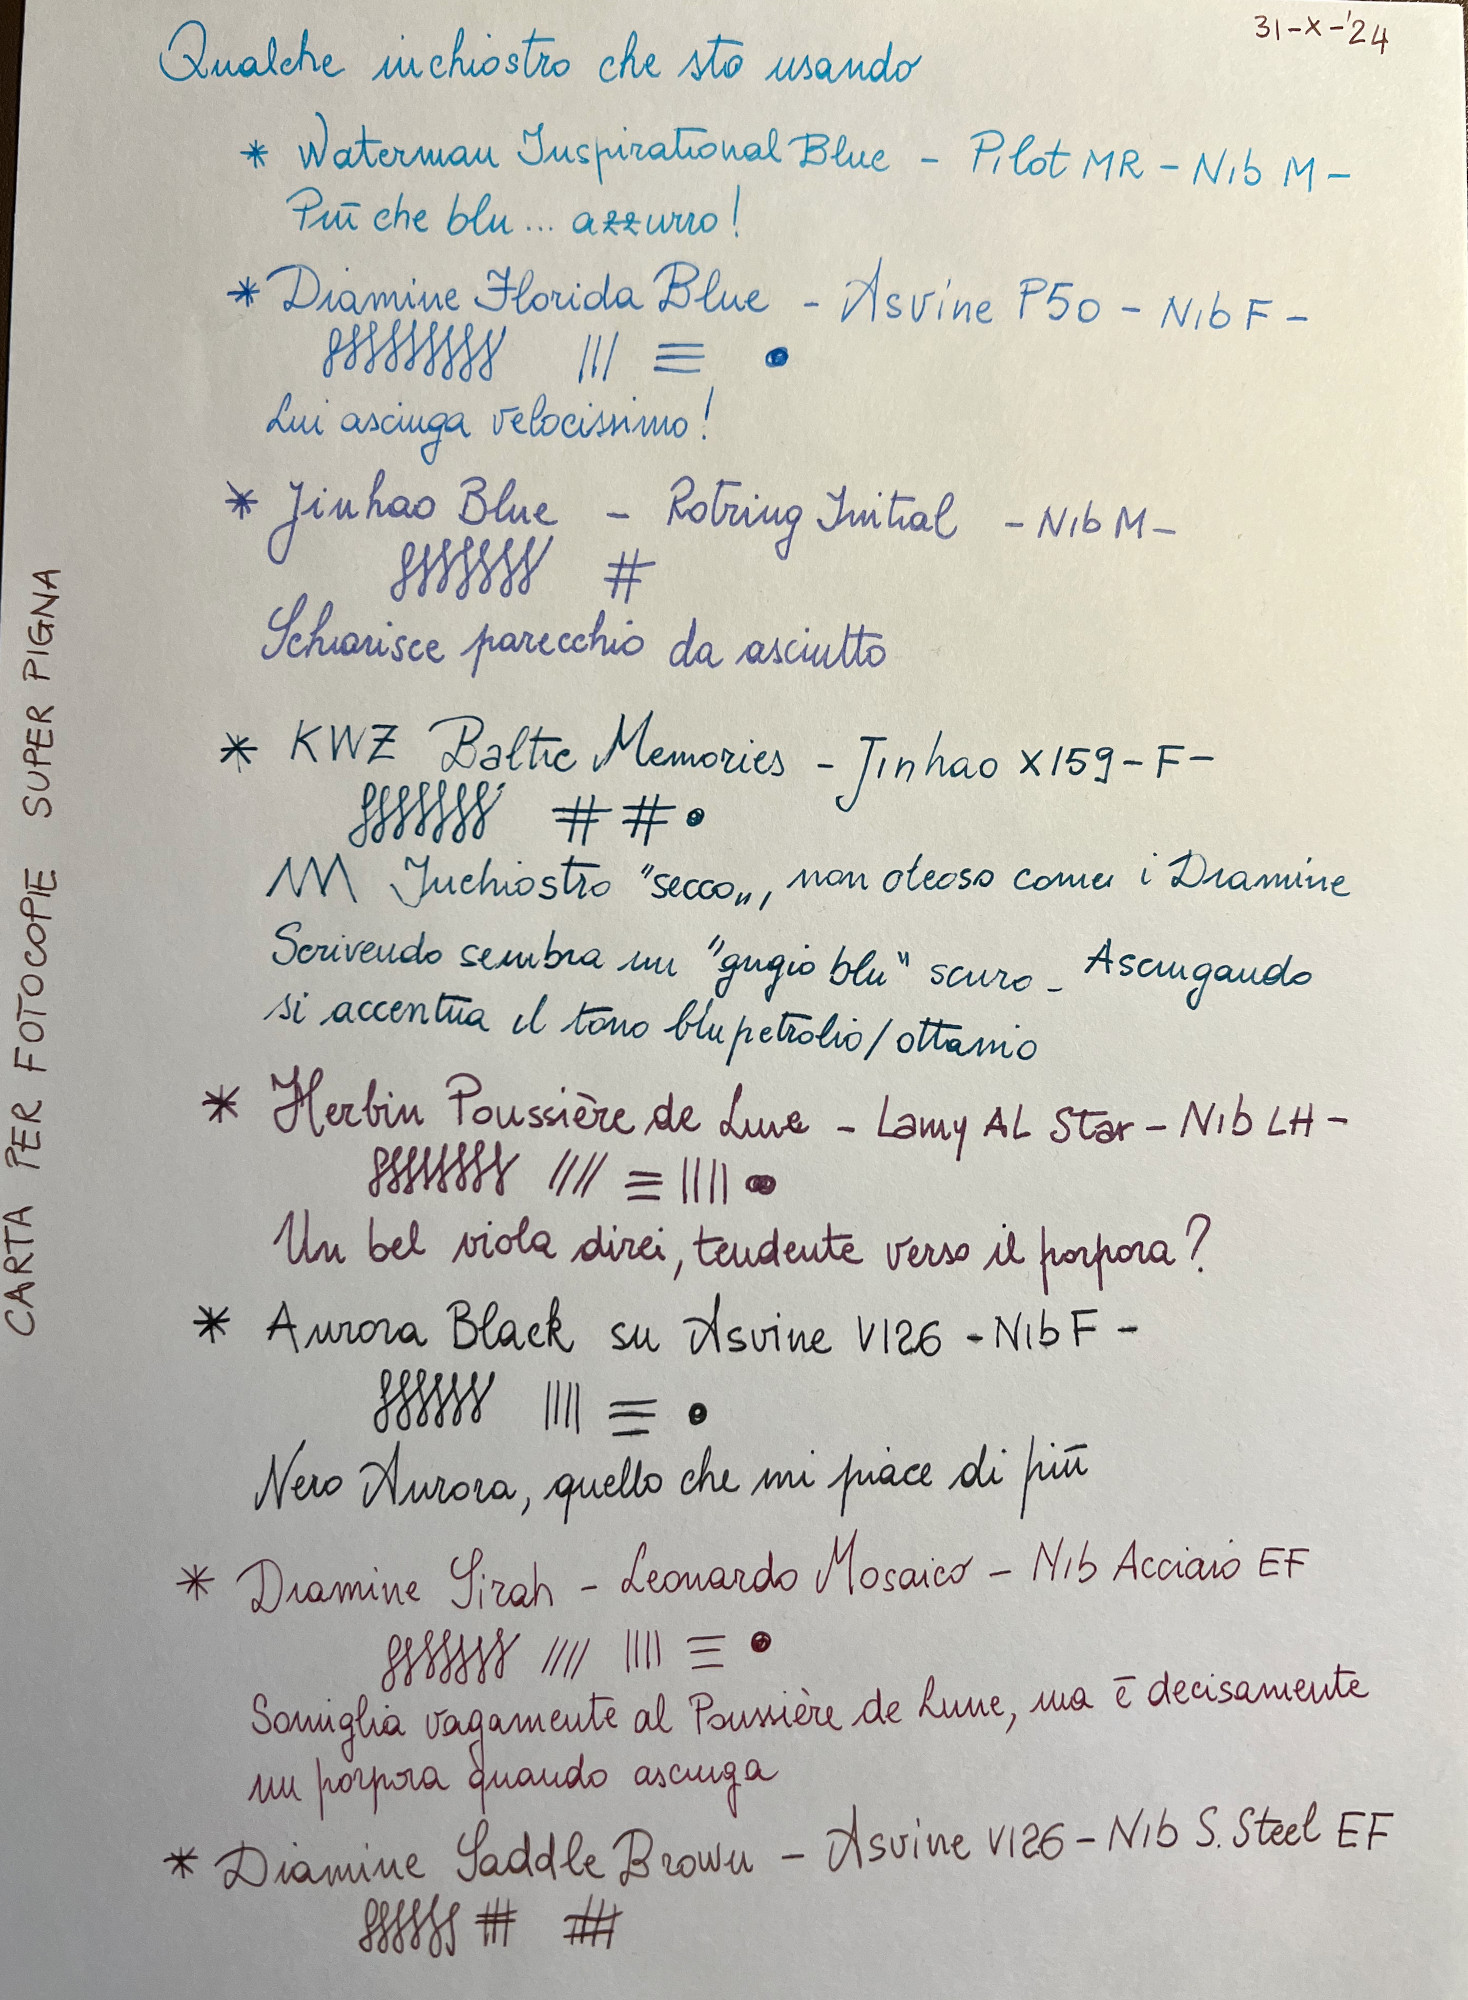 31-X-'24
Qualche inchiostro che sto usando
* Waterman Inspirational Blue - Pilot MR - Nib M -
Più che blu... azzurro!
* Diamine Florida Blue - Asvine P50 - Nib F -
Lui asciuga velocissimo!
* Jinhao Blue - Rotring Initial - Nib M -
#
Schiarisce parecchio da asciutto
* KWZ Baltic Memories - Jinhao X159 - F -
# #
Inchiostro "secco", non oleoso come i Diamine
Scrivendo sembra un "grigio blu" scuro - Asciugando
si accentua il tono blu petrolio/ottanio
* Herbin Poussière de Lune - Lamy AL Star - Nib LH -
Un bel viola direi, tendente verso il porpora?
* Aurora Black su Asvine V126 - Nib F -
Nero Aurora, quello che mi piace di più
* Diamine Sirah - Leonardo Mosaico - Nib Acciaio EF
Somiglia vagamente al Poussière de Lune, ma è decisamente
un porpora quando asciuga
* Diamine Saddle Brown - Asvine V126 - Nib S. Steel EF
CARTA PER FOTOCOPIE SUPER PIGNA